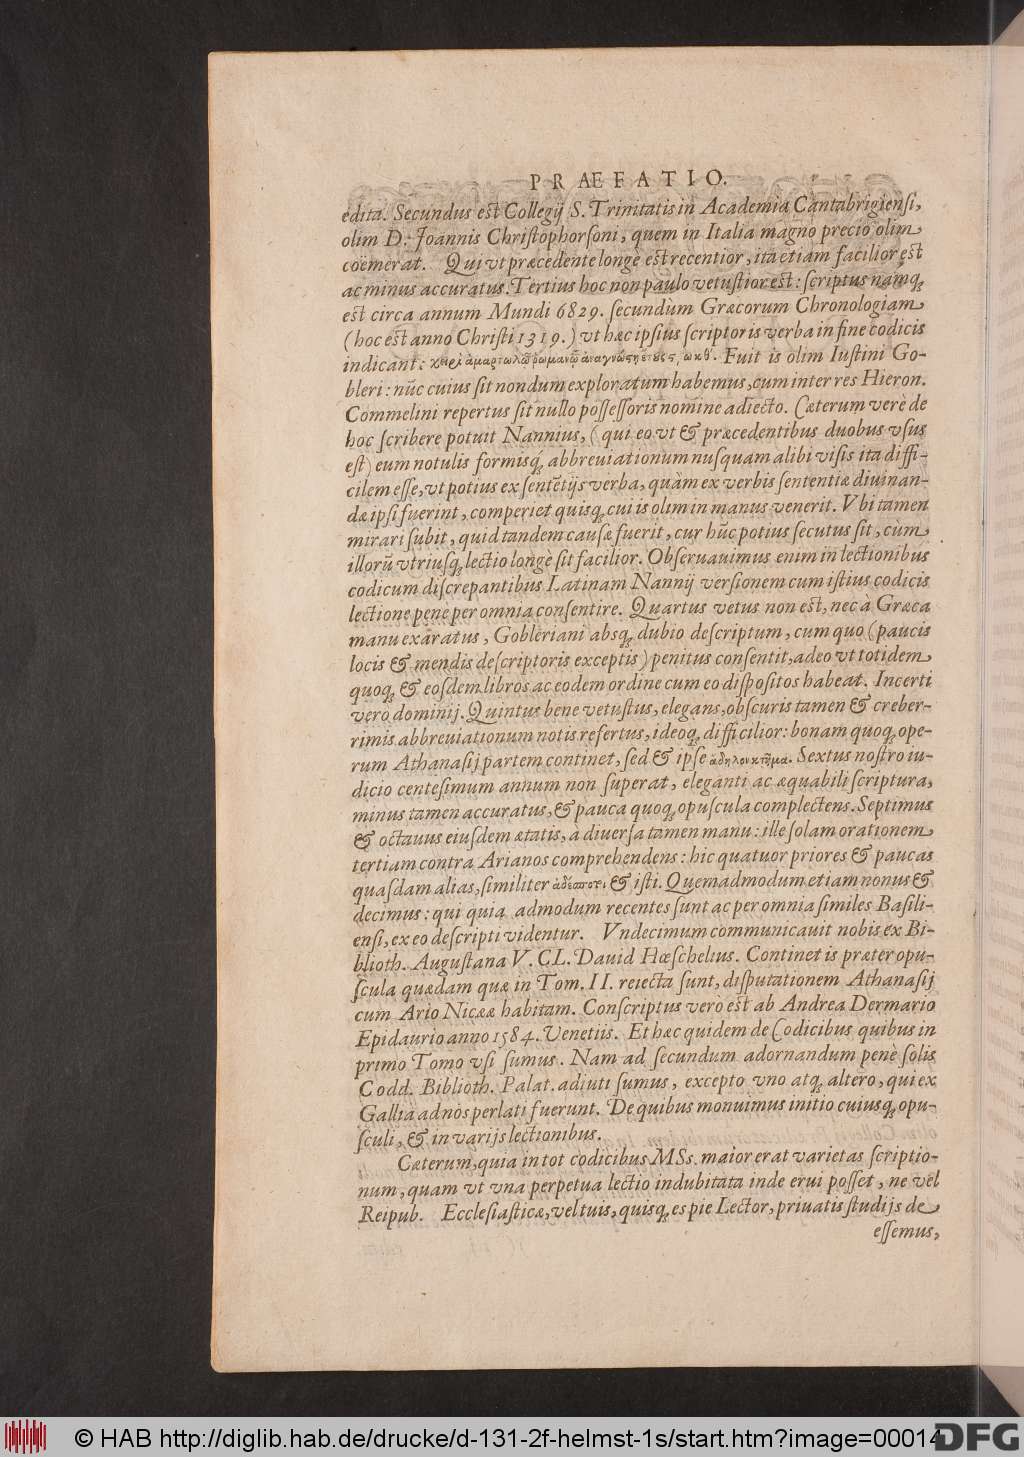 PRÆFATIO.
edita. Secundus est Collegij S. Trinitatis in Academia Cantabrigiensi,
olim D. Joannis Christophorsoni, quem in Italia magno precio olim
coëmerat. Qui vt præcedente longè est recentior, ita etiam facilior est
ac minus accuratus. Tertius hoc non paulo vetustior est: scriptus namq́;
est circa annum Mundi 6829. secundùm Græcorum Chronologiam
(hoc est anno Christi 1319.) vt hæc ipsius scriptoris verba in fine codicis
indicant: χειρὶ ἁμαρτωλοῦ ῥωμανοῦ ἀναγνώστη ἔτους ͵ςωκθʹ. Fuit is olim Iustini Go-
bleri: nũc cuius sit nondum exploratum habemus, cum inter res Hieron.
Commelini repertus sit nullo possessoris nomine adiecto. Cæterum verè de
hoc scribere potuit Nannius, (qui eo vt & præcedentibus duobus vsus
est) eum notulis formisq́; abbreuiationum nusquam alibi visis ita diffi-
cilem esse, vt potius ex sentẽtijs verba, quàm ex verbis sententiæ diuinan-
dæ ipsi fuerint, comperiet quisq; cui is olim in manus venerit. Vbi tamen
mirari subit, quid tandem causæ fuerit, cur hũc potius secutus sit, cùm
illorũ vtriusq; lectio longè sit facilior. Obseruauimus enim in lectionibus
codicum discrepantibus Latinam Nannij versionem cum istius codicis
lectione pene per omnia consentire. Quartus vetus non est, nec à Græca
manu exaratus, Gobleriani absq; dubio descriptum, cum quo (paucis
locis & mendis descriptoris exceptis) penitus consentit, adeo vt totidem
quoq; & eosdem libros ac eodem ordine cum eo dispositos habeat. Incerti
vero dominij. Quintus bene vetustus, elegans, obscuris tamen & creber-
rimis abbreuiationum notis refertus, ideoq; difficilior: bonam quoq; ope-
rum Athanasij partem continet, sed & ipse Sextus nostro iu-
dicio centesimum annum non superat, eleganti ac æquabili scriptura,
minus tamen accuratus, & pauca quoq; opuscula complectens. Septimus
& octauus eiusdem ætatis, à diuersa tamen manu: ille solam orationem
tertiam contra Arianos comprehendens: hic quatuor priores & paucas
quasdam alias, similiter ἀδέσποτοι & isti. Quemadmodum etiam nonus &
decimus: qui quia admodum recentes sunt ac per omnia similes Basili-
ensi, ex eo descripti videntur. Vndecimum communicauit nobis ex Bi-
blioth. Augustana V. CL. Dauid Hœschelius. Continet is præter opu-
scula quædam quæ in Tom. II. reiecta sunt, disputationem Athanasij
cum Ario Nicææ habitam. Conscriptus verò est ab Andrea Dermario
Epidaurio anno 1584. Venetiis. Et hæc quidem de Codicibus quibus in
primo Tomo vsi sumus. Nam ad secundum adornandum penè solis
Codd. Biblioth. Palat. adiuti sumus, excepto vno atq; altero, qui ex
Gallia ad nos perlati fuerunt. De quibus monuimus initio cuiusq; opu-
sculi, & in varijs lectionibus.
Cæterum, quia in tot codicibus MSs. maior erat varietas scriptio-
num, quam vt vna perpetua lectio indubitata inde erui posset, ne vel
Reipub. Ecclesiasticæ, vel tuis, quisq; es pie Lector, priuatis studijs de
essemus,
© HAB http://diglib.hab.de/drucke/d-131-2f-helmst-1s/start.htm?image=00014
DFG